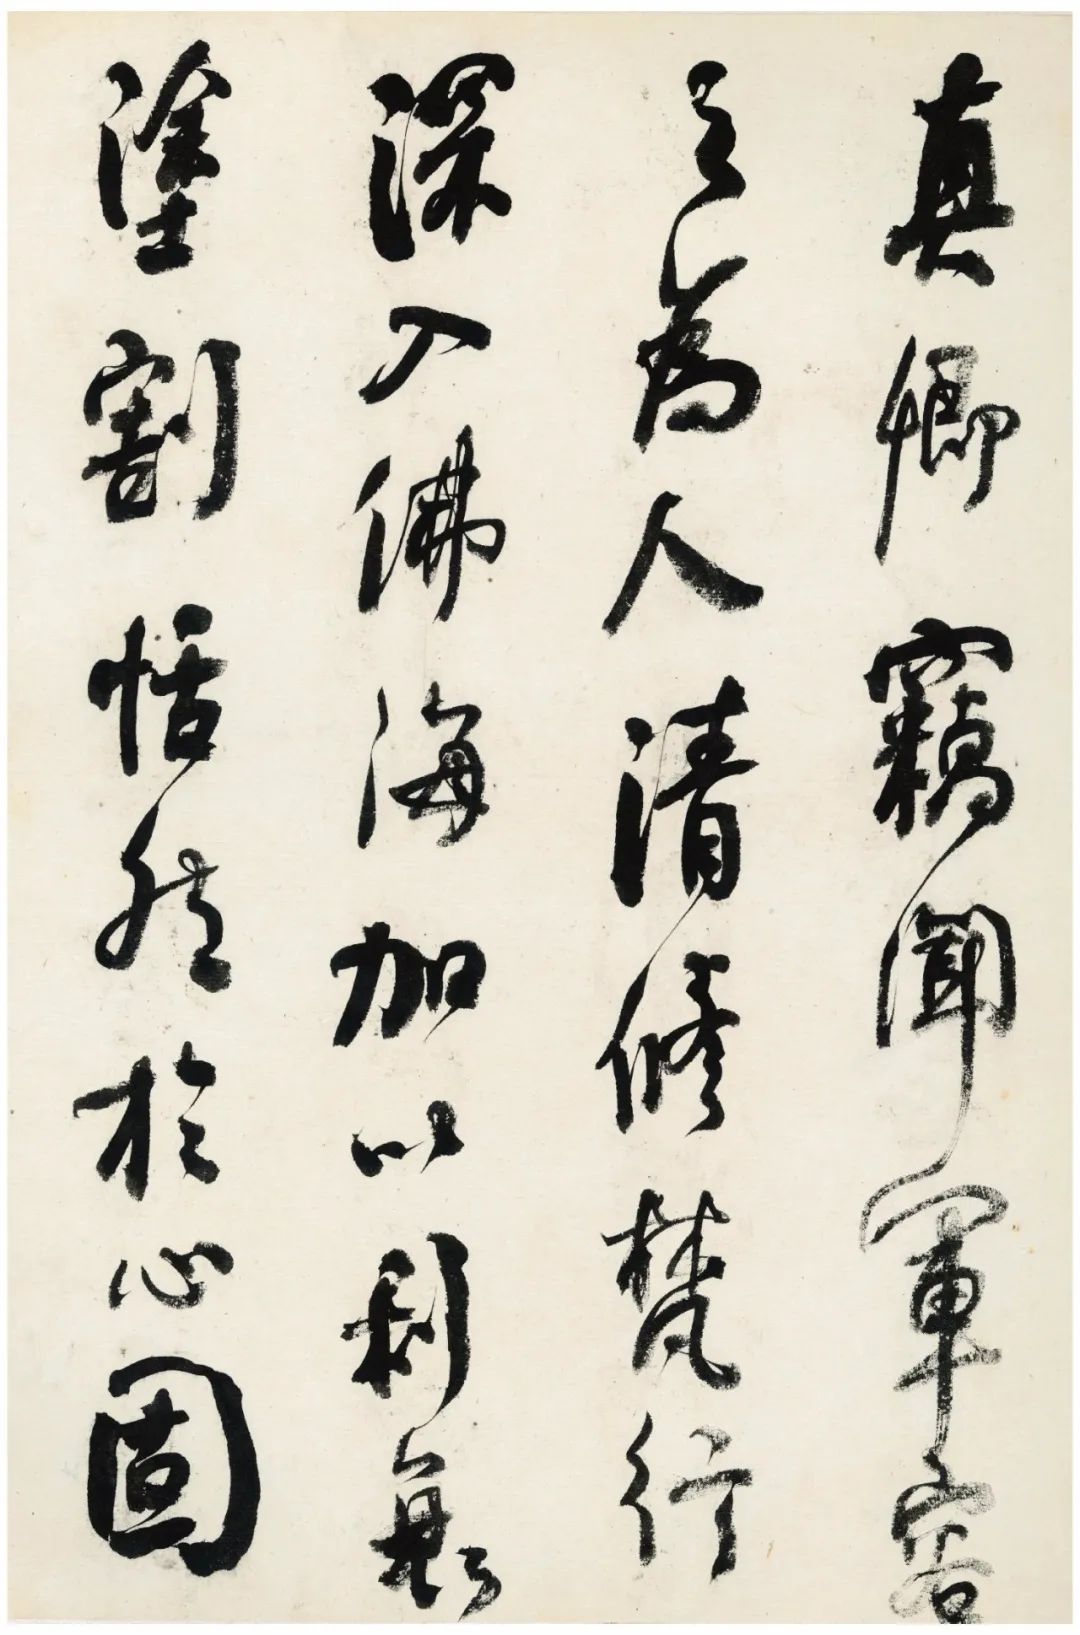 真卿竊聞軍容
之為人清修梵行
深入佛海加以利
塗割恬然於心固